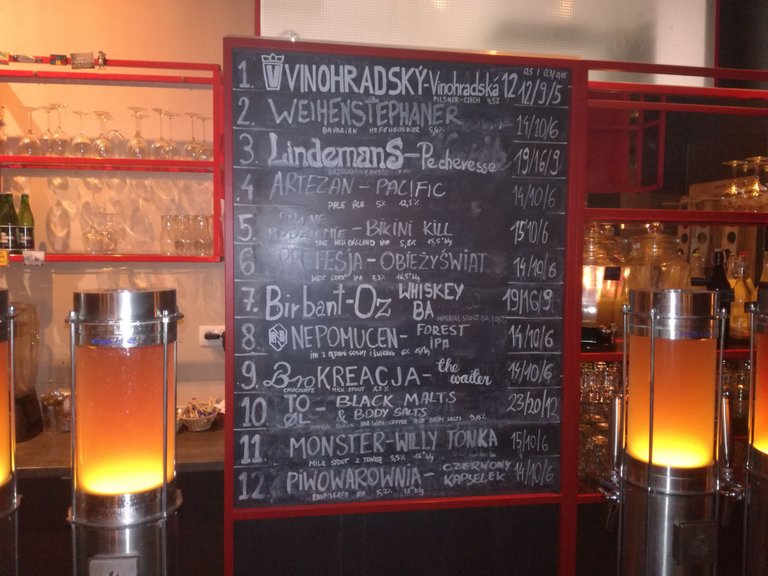 0,5 | 0,3 | 0,15
1. VINOHRADSKÝ-Vinohradská 12 12/9/5
PILSNER-CZECH 4,5%
2. WEIHENSTEPHANER 14/10/6
BAVARIAN HEFEWEISBIER 5,4%
3. LindemanS-Pecheresse 19/16/9
4. ARTEZAN-PACIFIC 14/10/6
PALE ALE 5% 12,5°
5. - BIKINI KILL 15/10/6
NEW ENGLAND IPA 5,8% 15,5° blg
6. PROFESJA-OBIEŻYŚWIAT 14/10/6
WEST COAST IPA 7,3% 16,5° blg
7. Birbant-Oz WHISKEY BA 19/16/9
IMPERIAL STOUT
8. NEPOMUCEN- FOREST IPA 14/10/6
IPA Z PĘDAMI SOSNY I ŚWIERKU 6%
9. BroKREACJA- the waiter 14/10/6
CHOCOLATE MILK STOUT
10 TO ØL - BLACK MALTS & BODY SALTS 23/20/12
BLACK IPA WITH COFFEE AND BODY SALTS
11 MONSTER-WILLY TONKA 15/10/6
MILK STOUT Z TONKĄ 5,5% 16° blg
12 PIWOWAROWNIA- CZERWONY KAPSELEK 14/10/6
RASPBERRY IPA 5,2% 12° blg